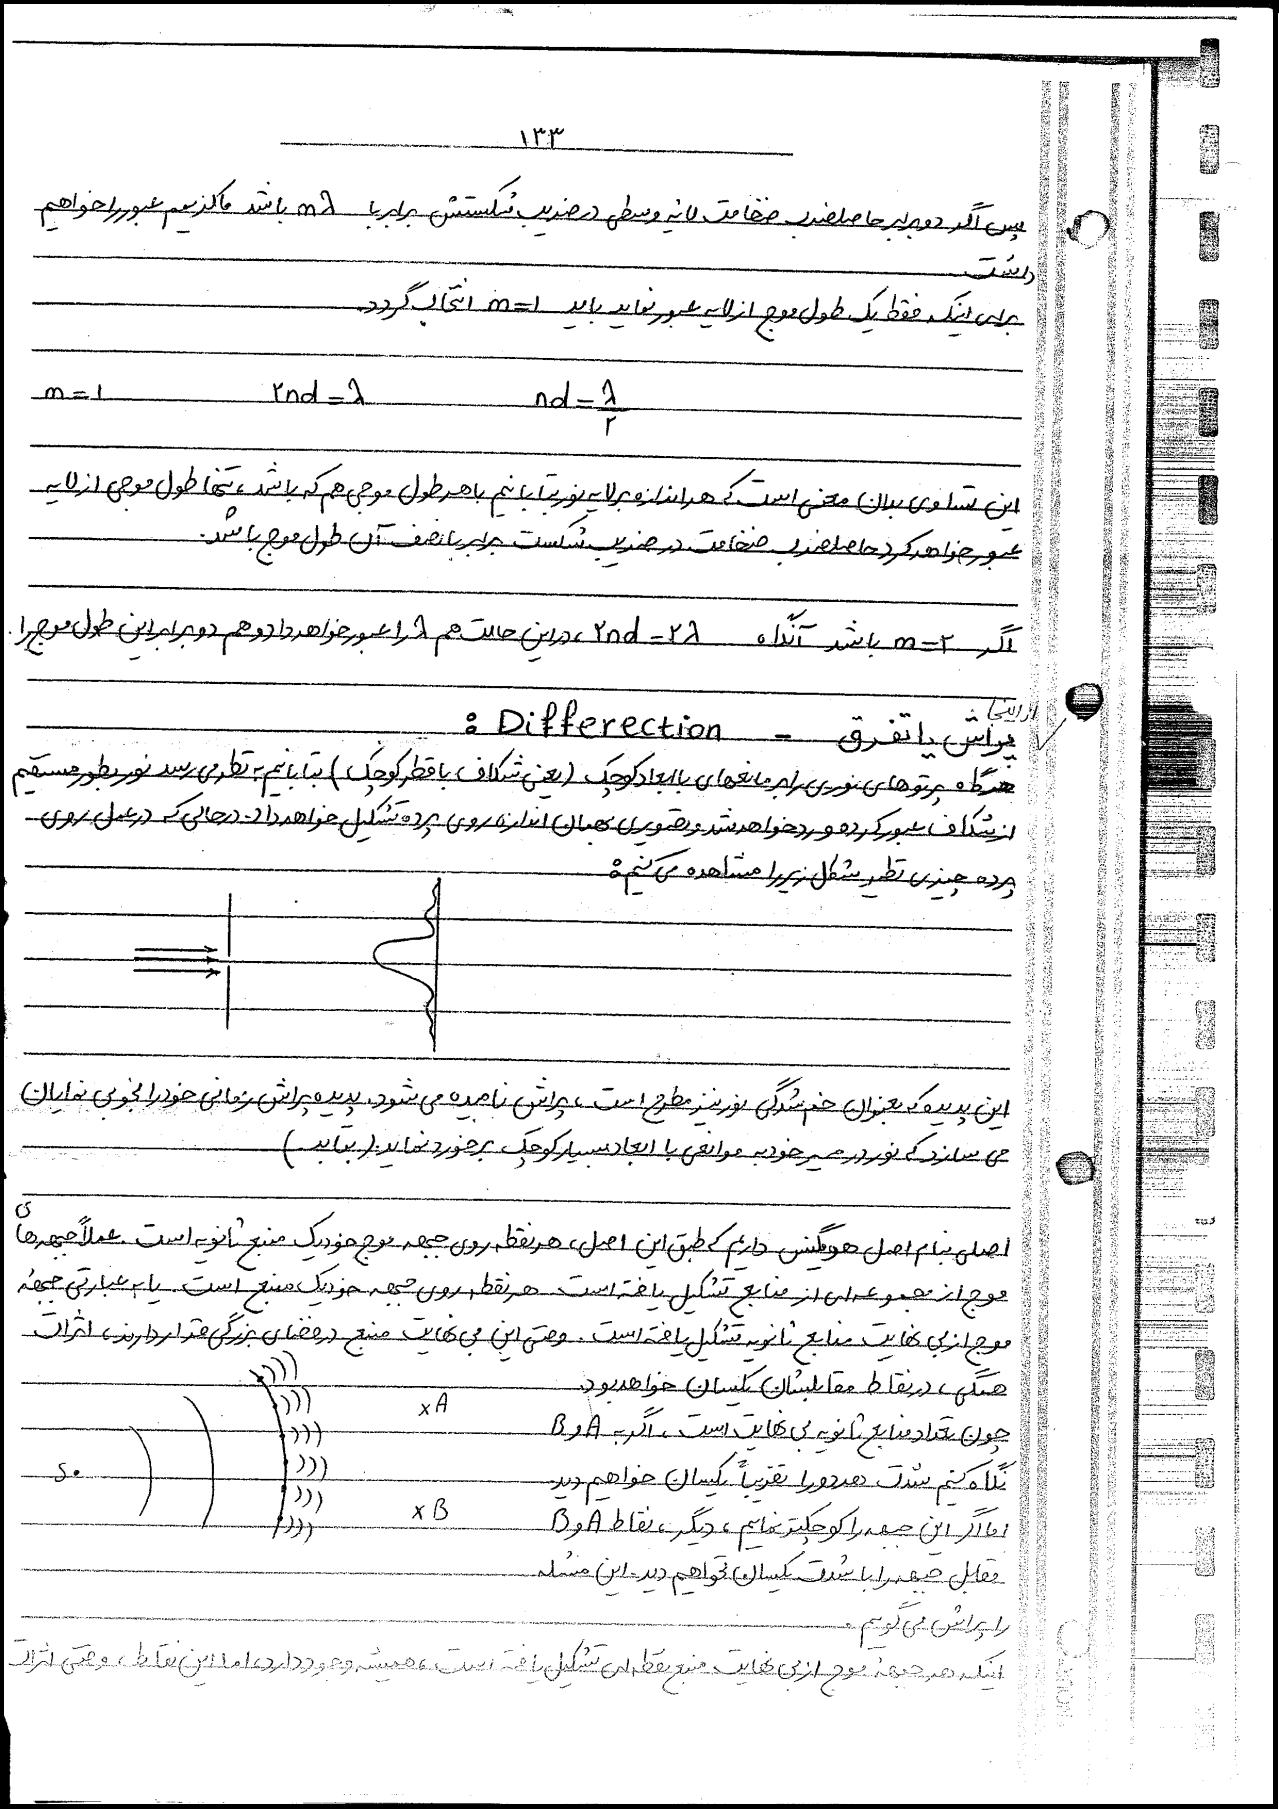 ۱۳۳
پس اگر دو برابر حاصلضرب ضخامت لایه وسطی در ضریب شکستش برابر با mλ باشد ماکزیمم عبور را خواهیم
داشت.
برای اینکه فقط یک طول موج از لایه عبور نماید باید m=۱ انتخاب گردد.
m=۱ ۲nd=λ nd=λ/۲
این تساوی بدان معنی است که هر اندازه بر لایه نور بتابانیم با هر طول موجی هم که باشد، تنها طول موجی از لایه
عبور خواهد کرد حاصلضرب ضخامت در ضریب شکست برابر با نصف آن طول موج باشد.
اگر m=۲ باشد آنگاه ۲nd=۲λ، در این حالت هم λ را عبور خواهد داد و هم دو برابر این طول موج را.
از اینجا
پراش یا تفرق - Differection :
هرگاه پرتوهای نوری را بر مانعهای با ابعاد کوچک (یعنی شکاف با قطر کوچک) بتابانیم به نظر می رسد نور بطور مستقیم
از شکاف عبور کرده و رد خواهد شد و تصویری بهمان اندازه روی پرده تشکیل خواهد داد. در حالی که در عمل روی
پرده چیزی نظیر شکل زیر را مشاهده می کنیم:
این پدیده که بعنوان خم شدگی نور نیز مطرح است، پراش نامیده می شود. پدیده پراش زمانی خود را بخوبی نمایان
می سازد که نور در مسیر خود به موانعی با ابعاد بسیار کوچک برخورد نماید. (بتابد.)
اصلی بنام اصل هویگنس داریم که طبق این اصل، هر نقطه روی جبهه موج خود یک منبع ثانویه است. عملاً جبهه های
موج از مجموعه ای از منابع تشکیل یافته است. هر نقطه روی جبهه خود یک منبع است. یا به عبارتی جبهه
موج از بی نهایت منابع ثانویه تشکیل یافته است. وقتی این بی نهایت منبع در فضای بزرگی قرار دارند، اثرات
همگی، در نقاط مقابلشان یکسان خواهد بود.
چون تعداد منابع ثانویه بی نهایت است، اگر به A و B
نگاه کنیم شدت هر دو را تقریباً یکسان خواهیم دید.
اما اگر این جبهه را کوچکتر نماییم، دیگر، نقاط A و B
مقابل جبهه را با شدت یکسان نخواهیم دید. این مسئله
را پراش می گوییم.
S
xA
xB
اینکه هر جبهه موج از بی نهایت منبع نقطه ای تشکیل یافته است، همیشه وجود دارد، اما این نقاط، وقتی اثرات